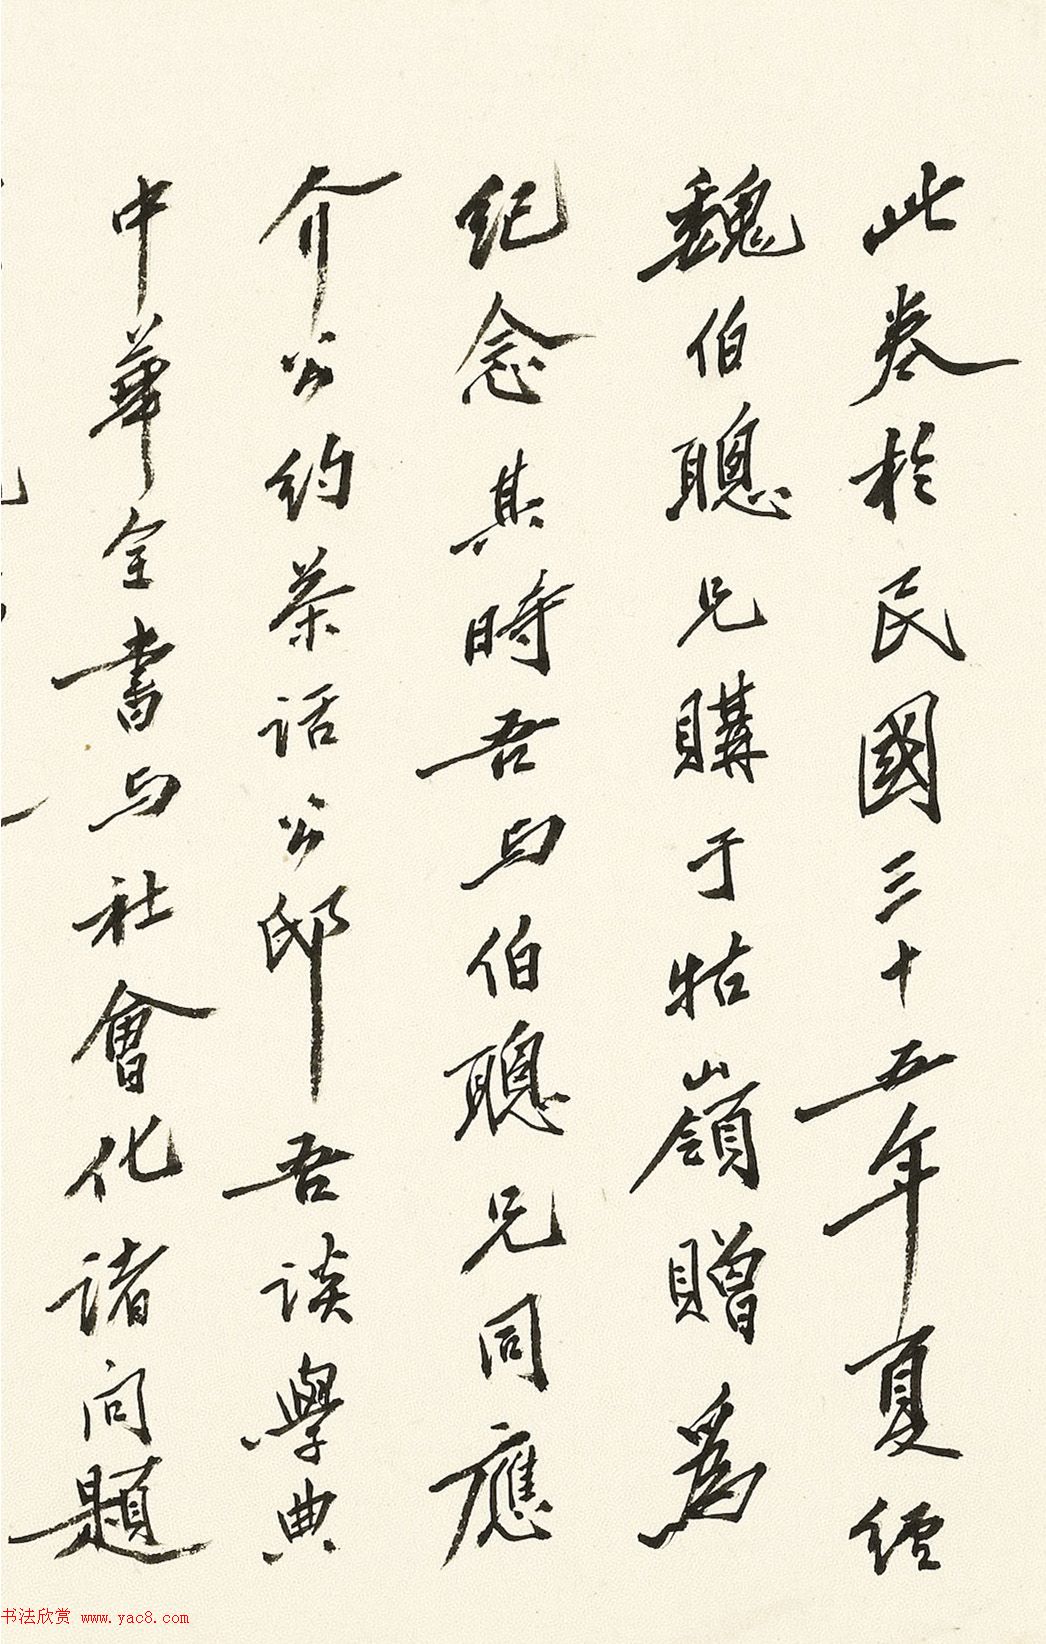 此卷於民國三十五年夏經
魏伯聰兄購于牯嶺贈為
紀念其時吾与伯聰兄同應
介公約茶話公邸吾談學典
中華全書与社會化諸問題
书法欣赏 www.yac8.com